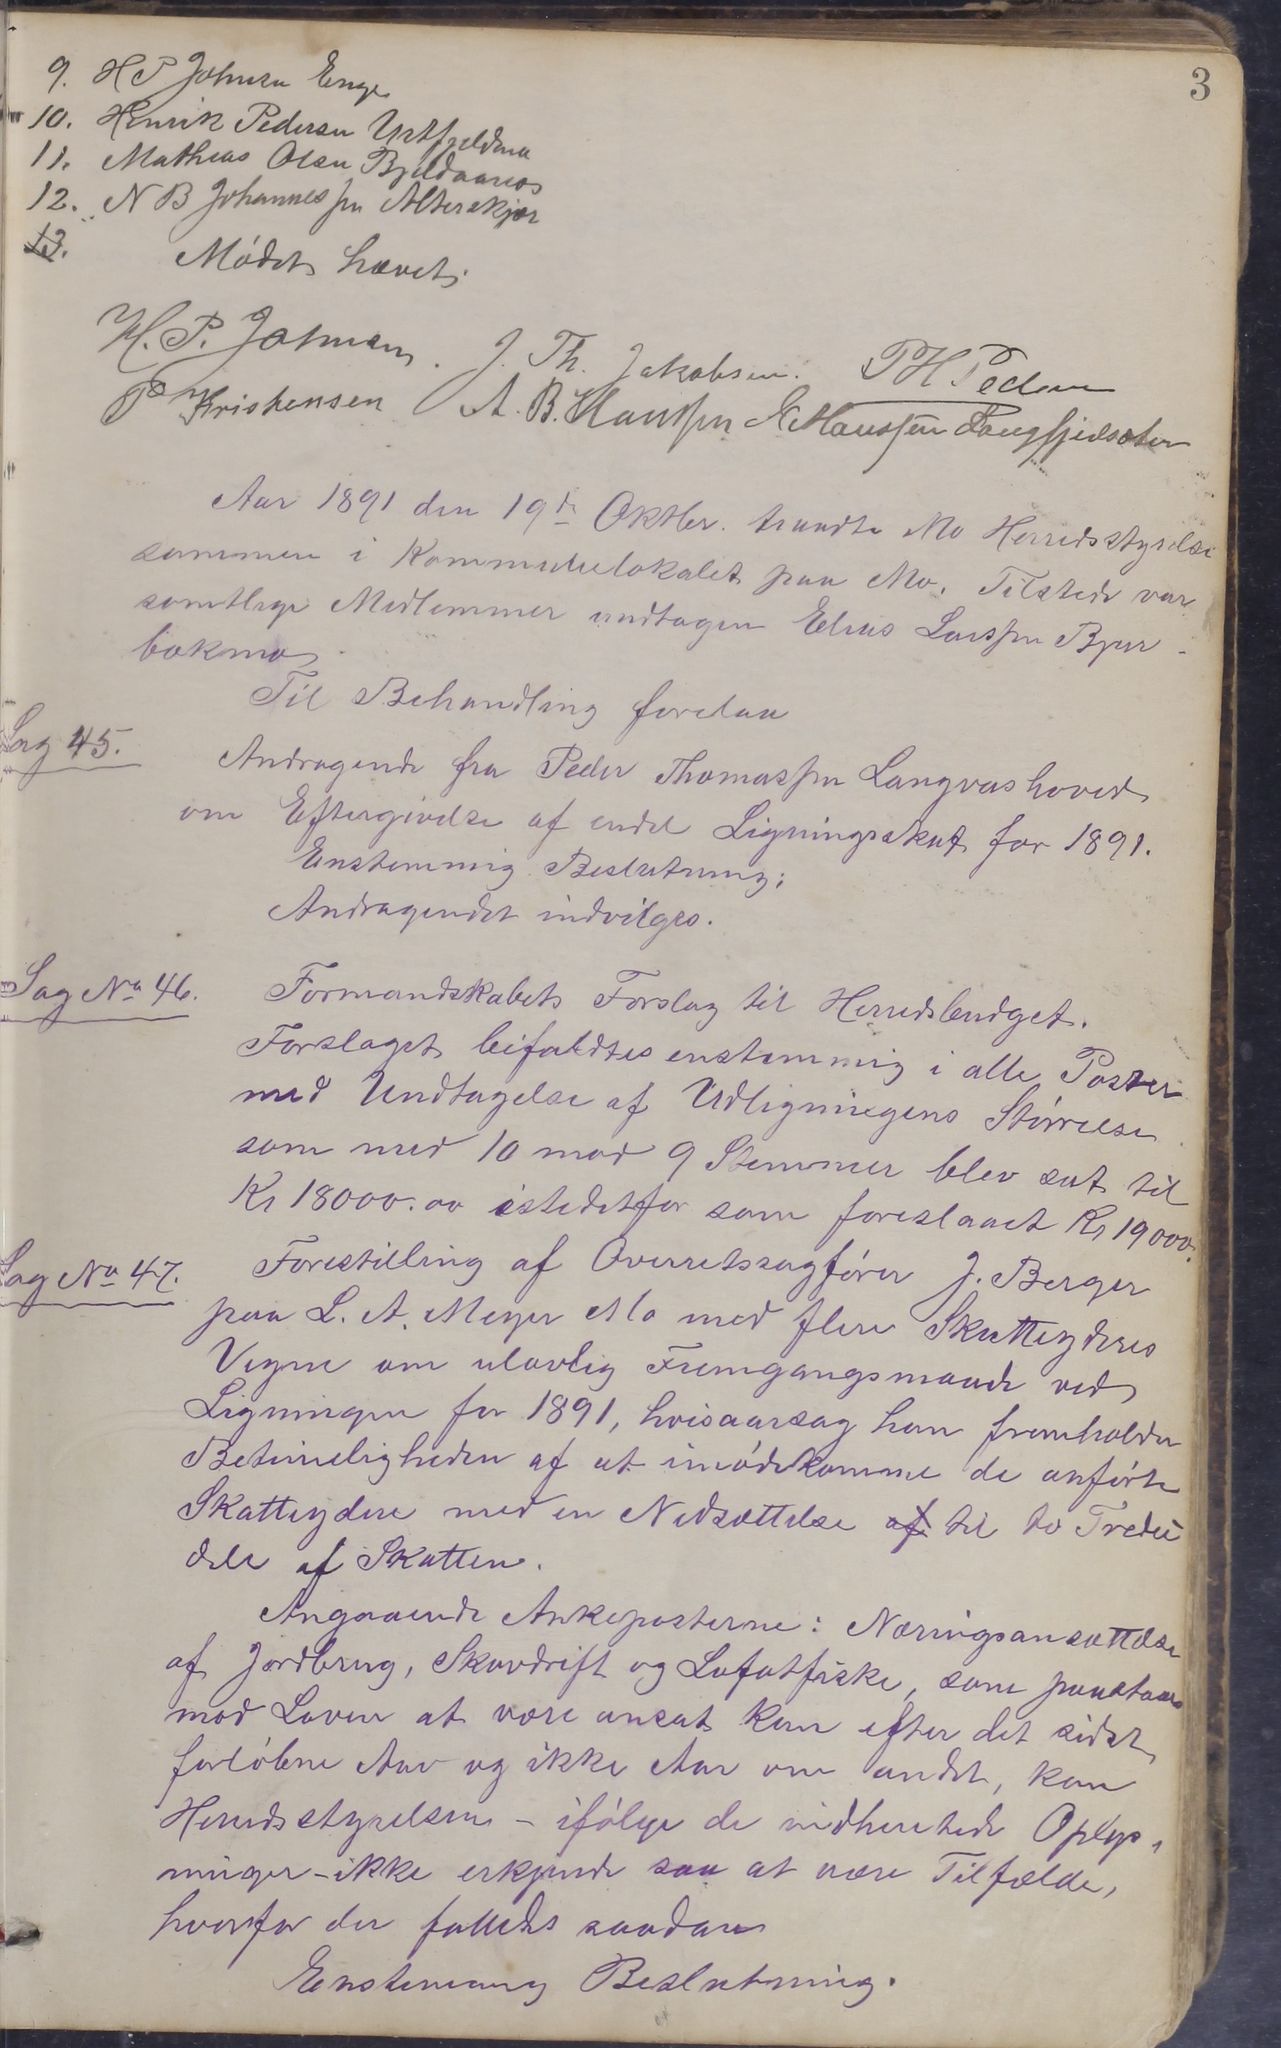 3
9. H P Johnsen Enge
10. Henrik Pedersen Urtfjeldmo
11. Mathias Olsen Bjeldaanes
12. N B Johannessen Alterskjær
13.
Mødet hævet.
H. P. Johnsen. J. Th. Jakobsen. P H Peder
P Kristensen A. B. Hanssen E Hanssen Langfjeldsæter
Aar 1891 den 19de Oktbr. traadte Mo Herredsstyrelse
sammen i Kommunelokalet paa Mo. Tilstede var
samtlige Medlemmer undtagen Elias Larssen Bjer-
bækmo
Til Behandling forelaa
Sag 45.
Andragende fra Peder Thomassen Langvashoved
om Eftergivelse af endel Ligningsskat for 1891.
Enstemmig Beslutning:
Andragendet indvilges.
Sag No 46.
Formandskabets Forslag til Herredsbudget.
Forslaget bifaldtes enstemmig i alle Poster
med Undtagelse af Udligningens Størrelse
som med 10 mod 9 Stemmer blev sat til
Kr 18000.00 istedetfor som foreslaaet Kr 19000.
Sag No 47.
Forestilling af Overretssagfører J. Berger
paa L. A. Meyer Mo med flere Skatteyderes
Vegne om ulovlig Fremgangsmaade ved
Ligningen for 1891, hvisaarsag han fremholder
Betimeligheden af at imødekomme de anførte
Skatteydere med en Nedsættelse af til to Tredie
dele af Skatten.
Angaaende Ankeposterne: Næringsansættelse
af Jordbrug, Skovdrift og Lofotfiske, som paastaaes
mod Loven at være ansat kun efter det sidst
forløbne Aar og ikke Aar om andet, kan
Herredsstyrelsen - ifølge de indhentede Oplys-
ninger - ikke erkjende saa at være Tilfælde,
hvorfor der fattedes saadan
Enstemmig Beslutning.